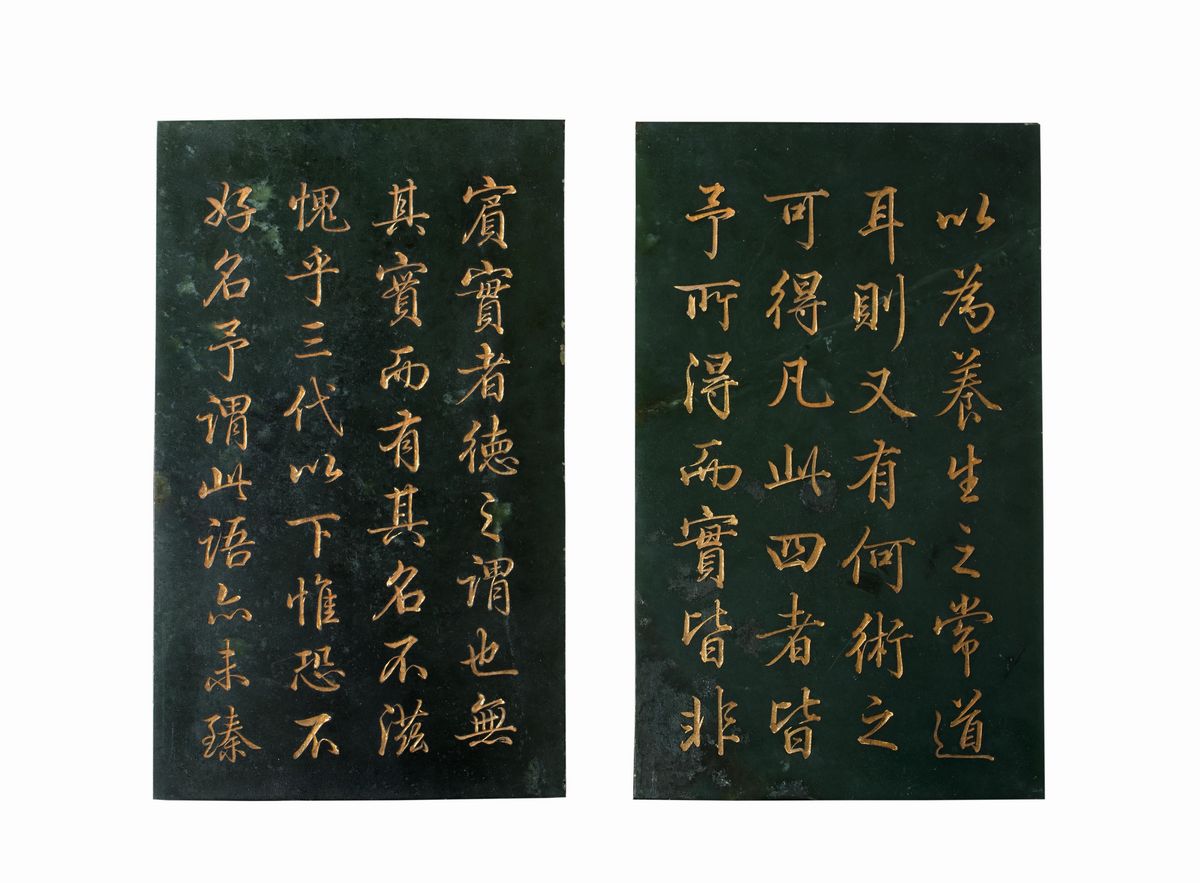 以為養生之常道
耳則又有何術之
可得凡此四者皆
予所得而實皆非
賔實者德之謂也無
其實而有其名不滋
愧乎三代以下惟恐不
好名予謂此語亦未臻